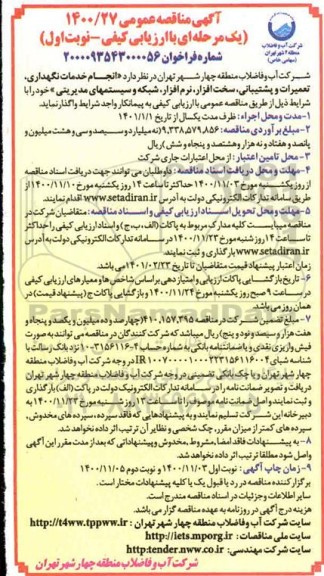 آگهی مناقصه عمومی ۱۴۰۰/۲۷
(یک مرحله ای با ارزیابی کیفی - نوبت اول)
شماره فراخوان ۲۰۰۰۰۹۳۵۴۳۰۰۰۰۵۶
شرکت آب و فاضلاب
منطقه ۴ شهر تهران
(سهامی خاص)
شرکت آب و فاضلاب منطقه چهار شهر تهران در نظر دارد «انجام خدمات نگهداری،
تعمیرات و پشتیبانی، سخت افزار، نرم افزار، شبکه و سیستمهای مدیریتی» خود را با
شرایط ذیل از طریق مناقصه عمومی با ارزیابی کیفی به پیمانکار واجد شرایط واگذار نماید.
۱- مدت و محل اجراء: ظرف مدت یکسال از تاریخ ۱۴۰۱/۱/۱
۲- مبلغ برآوردی مناقصه: ۹،۳۳۸،۵۷۹،۸۵۶ (نه میلیارد و سیصد و سی و هشت میلیون و
پانصد و هفتاد و نه هزار و هشتصد و پنجاه و شش) ریال
۳- محل تامین اعتبار: از محل اعتبارات جاری شرکت
۴- مهلت و محل دریافت اسناد مناقصه: داوطلبان می توانند جهت دریافت اسناد مناقصه
از روز یکشنبه مورخ ۱۴۰۰/۱۱/۰۳ حداکثر تا ساعت ۱۴ روز یکشنبه مورخ ۱۴۰۰/۱۱/۱۰ از
طریق سامانه تدارکات الکترونیکی دولت به آدرس www.setadiran.ir اقدام نمایند.
۵- مهلت و محل تحویل اسناد ارزیابی کیفی و اسناد مناقصه: متقاضیان شرکت در
مناقصه میبایست کلیه مدارک مربوط به پاکات (الف، ب، ج) و اسناد ارزیابی کیفی را حداکثر
تا ساعت ۱۴ روز شنبه مورخ ۱۴۰۰/۱۱/۲۳ در سامانه تدارکات الکترونیکی دولت به آدرس
www.setadiran.ir بارگذاری و ثبت نمایند.
زمان اعتبار پیشنهاد قیمت متقاضیان تا تاریخ ۱۴۰۱/۰۲/۲۳ می باشد.
۶- تاریخ بازگشایی پاکات ارزیابی و امتیازدهی بر اساس شاخص ها و معیارهای ارزیابی کیفی
در ساعت ۹ صبح روز یکشنبه مورخ ۱۴۰۰/۱۱/۲۴ و بازگشایی پاکات ج (پیشنهاد قیمت) در
همان روز می باشد.
۷- مبلغ تضمین شرکت در مناقصه ۴۱۰،۱۵۷،۳۹۵ (چهارصد و ده میلیون و یکصد و پنجاه و
هفت هزار و سیصد و نود و پنج) ریال میباشد که شرکت کنندگان در مناقصه می توانند به صورت
فیش واریزی نقدی و یا ضمانتنامه بانکی به شماره حساب ۱۰۳۱۵۶۱۱۶۰۰۴ نزد بانک رسالت با
شناسه شبای در وجه شرکت آب و فاضلاب منطقه
چهار شهر تهران و یا چک بانکی تضمینی در وجه شرکت آب و فاضلاب منطقه چهار شهر تهران
دریافت و تصویر ضمانت نامه را در سامانه تدارکات الکترونیک دولت در پاکت (الف) بارگذاری
و ثبت نمایند و اصل ضمانت نامه موصوف را تا ساعت ۱۴ روز شنبه مورخ ۱۴۰۰/۱۱/۲۳ به
دبیرخانه این شرکت تسلیم نمایند و به پیشنهادهایی که فاقد سپرده، سپرده های مخدوش،
سپرده های کمتر از میزان مقرر، چک شخصی و نظایر آن ترتیب اثر داده نخواهد شد.
۸- به پیشنهادات فاقد امضاء، مشروط، مخدوش و پیشنهاداتی که بعد از مدت مقرر این آگهی
واصل شود مطلقا ترتیب اثر داده نخواهد شد.
۹- زمان چاپ آگهی: نوبت اول ۱۴۰۰/۱۱/۰۳ و نوبت دوم ۱۴۰۰/۱۱/۰۵
برگزار کننده مناقصه در رد یا قبول یک یا کلیه پیشنهادات مختار است.
سایر اطلاعات و جزئیات در اسناد مناقصه مندرج است.
هزینه درج آگهی در روزنامه به عهده مناقصه گزار می باشد.
سایت شرکت آب و فاضلاب منطقه چهار شهر تهران: http://t4ww.tppww.ir
سایت ملی مناقصات: http://iets.mporg.ir
سایت شرکت مهندسی: http:tender.nww.co.ir
شرکت آب و فاضلاب منطقه چهار شهر تهران